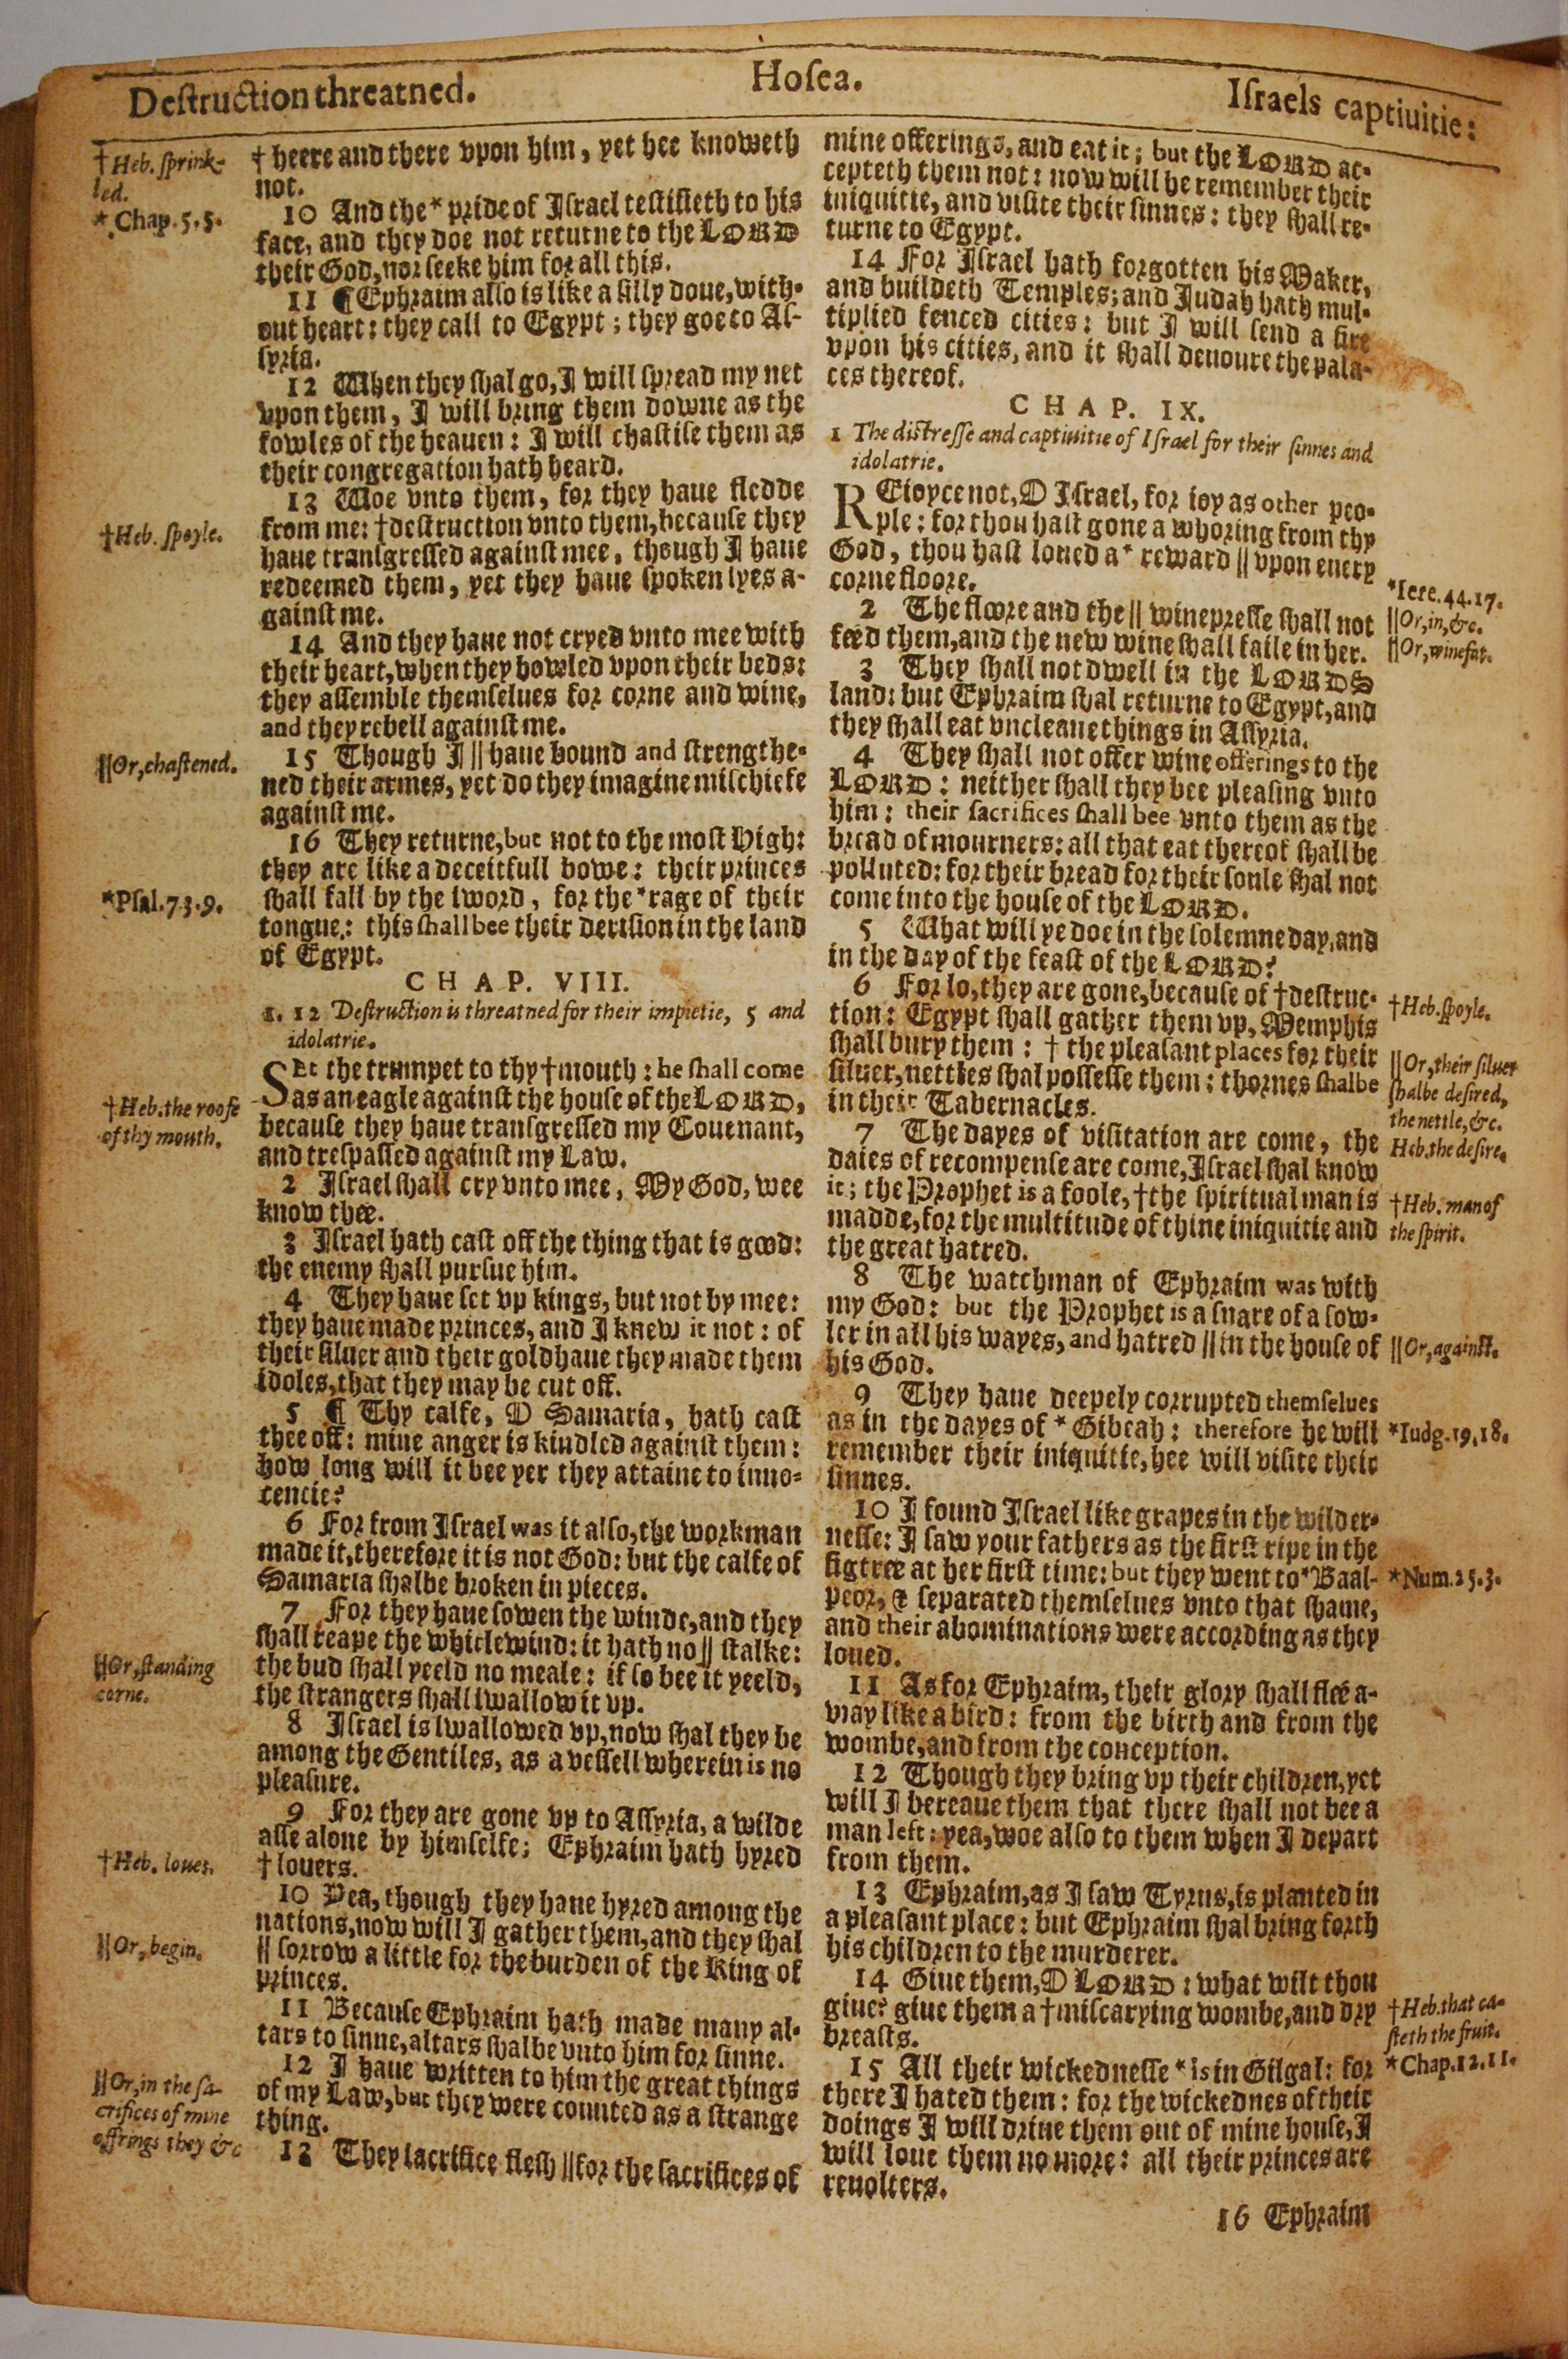 Destruction threatned.
Hosea.
Israels captiuitie:
†Heb. sprink-
led.
*Chap.5.5.
†Heb. spoyle.
||Or,chastened.
*Psal.73.9.
†Heb.the roofe
of thy mouth.
||Or,standing
corne.
†Heb. loues.
||Or,begin.
||Or,in the sa-
crifices of mine
offrings they &c
†heere and there vpon him, yet hee knoweth
not.
10 And the* pride of Israel testifieth to his
face, and they doe not returne to the LORD
their God,nor seeke him for all this.
11 ¶Ephraim also is like a silly doue,with-
out heart: they call to Egypt; they goe to As-
syria.
12 When they shal go,I will spread my net
vpon them, I will bring them downe as the
fowles of the heauen: I will chastise them as
their congregation hath heard.
13 Woe vnto them, for they haue fledde
from me: †destruction vnto them,because they
haue transgressed against mee, though I haue
redeemed them, yet they haue spoken lyes a-
gainst me.
14 And they haue not cryed vnto mee with
their heart,when they howled vpon their beds:
they assemble themselues for corne and wine,
and they rebell against me.
15 Though I || haue bound and strengthe-
ned their armes, yet do they imagine mischiefe
against me.
16 They returne,but not to the most High:
they are like a deceitfull bowe: their princes
shall fall by the sword, for the *rage of their
tongue: this shall bee their derision in the land
of Egypt.
CHAP. VIII.
1. 12 Destruction is threatned for their impietie, 5 and
idolatrie.
SEt the trumpet to thy †mouth: he shall come
as an eagle against the house of the LORD,
because they haue transgressed my Couenant,
and trespassed against my Law.
2 Israel shall cry vnto mee, My God, wee
know thee.
3 Israel hath cast off the thing that is good:
the enemy shall pursue him.
4 They haue set vp kings, but not by mee:
they haue made princes, and I knew it not: of
their siluer and their gold haue they made them
idoles,that they may be cut off.
5 ¶ Thy calfe, O Samaria, hath cast
thee off: mine anger is kindled against them:
how long will it bee yer they attaine to inno-
cencie?
6 For from Israel was it also,the workman
made it,therefore it is not God: but the calfe of
Samaria shalbe broken in pieces.
7 For they haue sowen the winde,and they
shall reape the whirlewind: it hath no || stalke:
the bud shall yeeld no meale: if so bee it yeeld,
the strangers shall swallow it vp.
8 Israel is swallowed vp,now shal they be
among the Gentiles, as a vessell wherein is no
pleasure.
9 For they are gone vp to Assyria, a wilde
asse alone by himselfe; Ephraim hath hyred
†louers.
10 Yea, though they haue hyred among the
nations,now will I gather them,and they shal
|| sorrow a little for the burden of the King of
princes.
11 Because Ephraim hath made many al-
tars to sinne,altars shalbe vnto him for sinne.
12 I haue written to him the great things
of my Law,but they were counted as a strange
thing.
13 They sacrifice flesh ||for the sacrifices of
mine offerings, and eat it; but the LORD ac-
cepteth them not: now will he remember their
iniquitie, and visite their sinnes: they shall re-
turne to Egypt.
14 For Israel hath forgotten his Maker,
and buildeth Temples; and Judah hath mul-
tiplied fenced cities: but I will send a fire
vpon his cities, and it shall deuoure the pala-
ces thereof.
CHAP. IX.
1 The distresse and captiuitie of Israel for their sinnes and
idolatrie.
REioyce not, O Israel, for ioy as other peo-
ple: for thou hast gone a whoring from thy
God, thou hast loued a* reward || vpon euery
corne floore.
2 The floore and the || winepresse shall not
feed them,and the new wine shall faile in her.
3 They shall not dwell in the LORDS
land: but Ephraim shal returne to Egypt,and
they shall eat vncleane things in Assyria.
4 They shall not offer wine offerings to the
LORD: neither shall they bee pleasing vnto
him: their sacrifices shall bee vnto them as the
bread of mourners: all that eat thereof shall be
polluted: for their bread for their soule shal not
come into the house of the LORD.
5 What will ye doe in the solemne day,and
in the day of the feast of the LORD?
6 For lo,they are gone,because of †destruc-
tion: Egypt shall gather them vp, Memphis
shall bury them: † the pleasant places for their
siluer,nettles shal possesse them: thornes shalbe
in their Tabernacles.
7 The dayes of visitation are come, the
daies of recompense are come,Israel shal know
it; the Prophet is a foole, †the spiritual man is
madde,for the multitude of thine iniquitie and
the great hatred.
8 The watchman of Ephraim was with
my God: but the Prophet is a snare of a fow-
ler in all his wayes, and hatred || in the house of
his God.
9 They haue deepely corrupted themselues
as in the dayes of * Gibeah: therefore he will
remember their iniquitie,hee will visite their
sinnes.
10 I found Israel like grapes in the wilder-
nesse: I saw your fathers as the first ripe in the
figtree at her first time: but they went to*Baal-
peor, & separated themselues vnto that shame,
and their abominations were according as they
loued.
11 As for Ephraim, their glory shall flee a-
way like a bird: from the birth and from the
wombe,and from the conception.
12 Though they bring vp their children,yet
will I bereaue them that there shall not bee a
man left: yea,woe also to them when I depart
from them.
13 Ephraim,as I saw Tyrus,is planted in
a pleasant place: but Ephraim shal bring forth
his children to the murderer.
14 Giue them,O LORD: what wilt thou
giue? giue them a †miscarying wombe,and dry
breasts.
15 All their wickednesse *is in Gilgal: for
there I hated them: for the wickednes of their
doings I will driue them out of mine house,I
will loue them no more: all their princes are
reuolters.
16 Ephraim
*Iere.44.17.
||Or,in,&c.
||Or,winefat.
†Heb.spoyle.
||Or,their siluer
shalbe desired,
the nettle,&c.
Heb.the desire.
†Heb. man of
the spirit.
||Or,against.
*Iudg.19.18.
*Num.25.3.
†Heb.that ca-
steth the fruit.
*Chap.12.11.